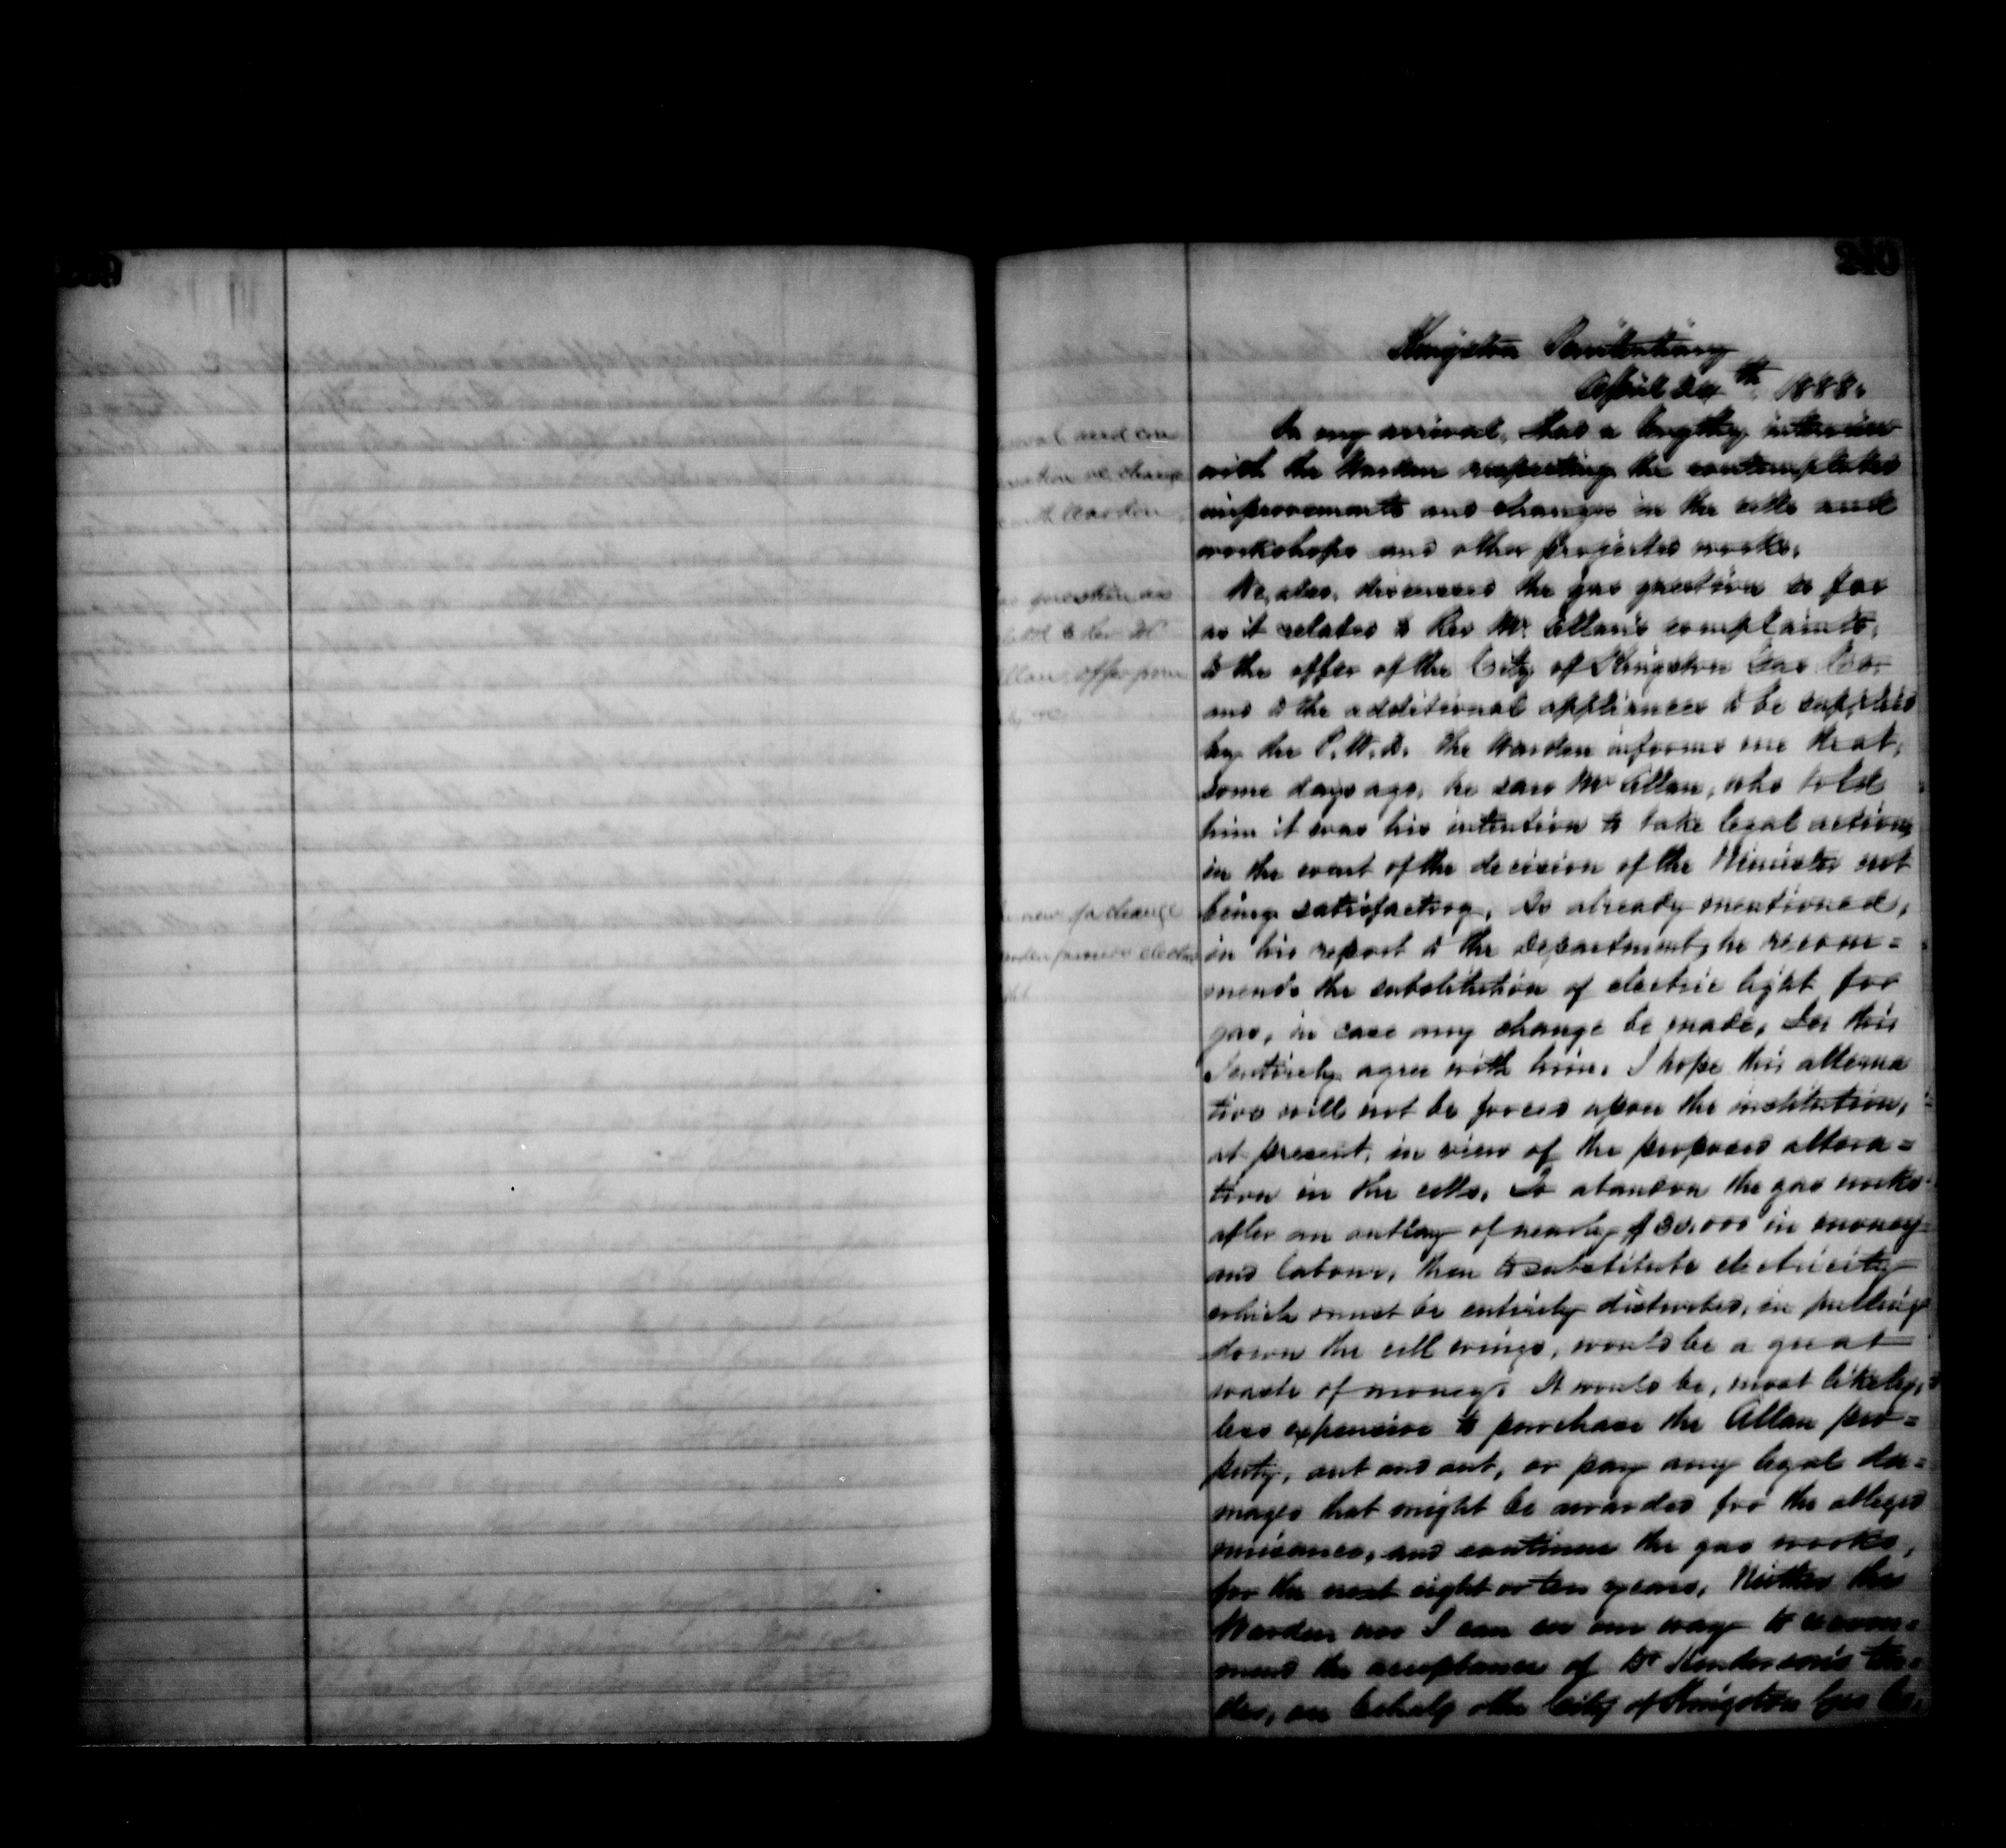 240
Kingston Penitentiary
April 24th 1888.
On my arrival, had a lengthy interview
with the Warden respecting the contemplated
improvements and changes in the cells and
workshops and other projected works.
We, also, discussed the gas question so far
as it relates to Rev Mr Allan's complaints,
to the offer of the City of Kingston Gas Co.
and to the additional appliances to be supplied
by the P.W.D. The Warden informs me that,
some days ago, he saw Mr Allan, who told
him it was his intention to take legal action,
in the event of the decision of the Minister not
being satisfactory. As already mentioned,
in his report to the Department, he recom=
mends the substitution of electric light for
gas, in case any change be made. In this
I entirely agree with him. I hope this alterna
tive will not be forced upon the institution,
at present, in view of the proposed altera=
tion in the cells. To abandon the gas works
after an outlay of nearly $30,000 in money
and labour, then to substitute electricity
which must be entirely disturbed, in pulling
down the cell wings, would be a great
waste of money. It would be, most likely,
less expensive to purchase the Allan pro=
perty, out and out, or pay any legal da=
mages that might be awarded for the alleged
nuisance, and continue the gas works,
for the next eight or ten years. Neither the
Warden nor I can see our way to recom=
mend the acceptance of Dr Henderson's ten=
der, on behalf o the City of Kingston Gas Co.
change
with Warden
gas question as
to Rev Mr
Allan offer from
change
electric